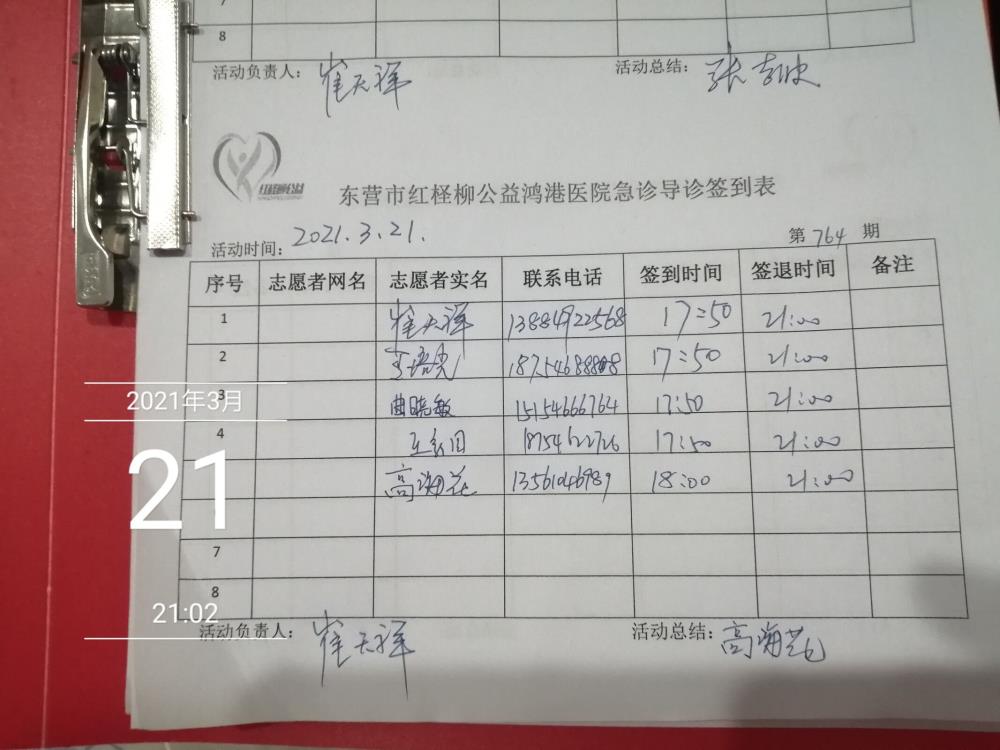 7
8
活动负责人： 崔天祥 活动总结： 张
东营市红柽柳公益鸿港医院急诊导诊签到表
活动时间： 2021.3.21. 第 764 期
序号 志愿者网名 志愿者实名 联系电话 签到时间 签退时间 备注
1 崔天祥 13884922568 17:50 21:00
2 17:50 21:00
3 曲晓敏 15154666764 17:50 21:00
4 18754622726 17:50 21:00
高海花 13561046989 18:00 21:00
7
8
活动负责人： 崔天祥 活动总结： 高海花
2021年3月
21
21:02